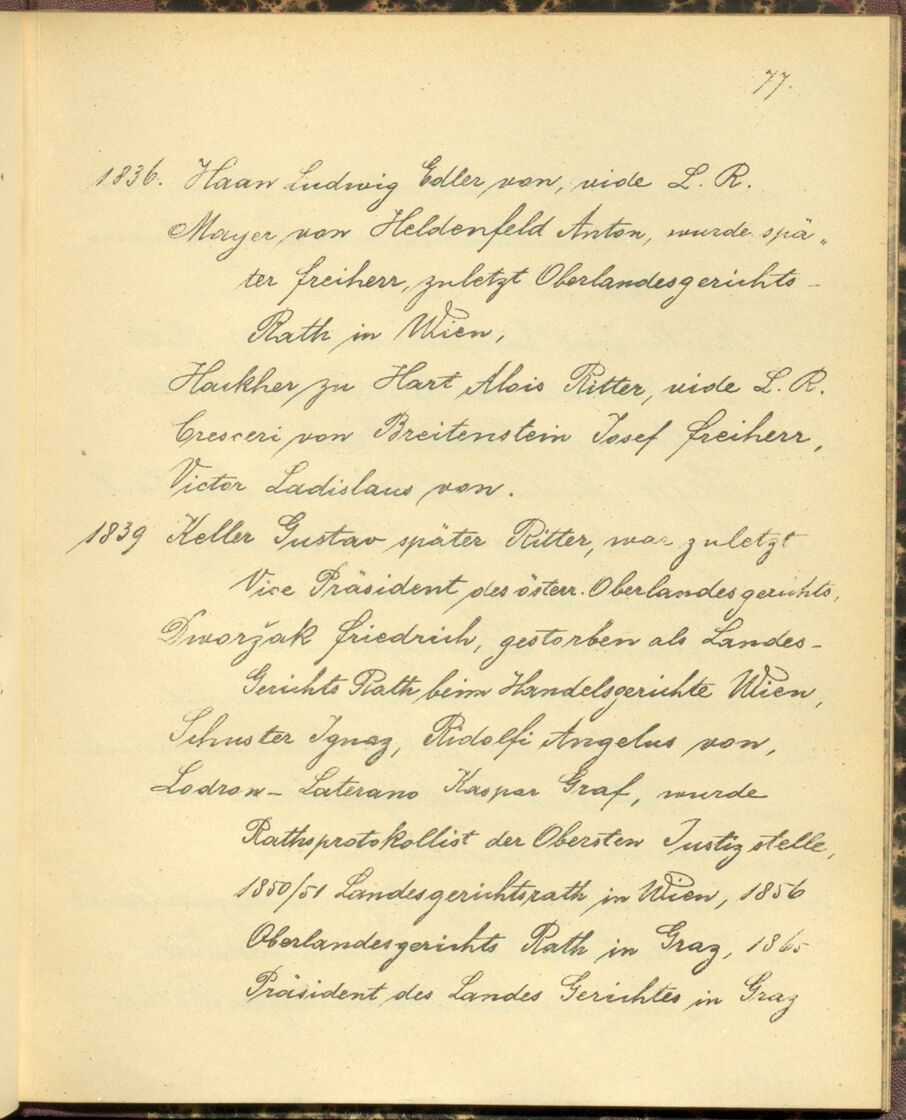 77.
1836. Haan Ludwig Edler von, vide L. R.
Mayer von Heldenfeld Anton, wurde spä„
ter Freiherr, zuletzt Oberlandesgerichts-
Rath in Wien,
Hackher zu Hart Alois Ritter, vide L. R.
Cresceri von Breitenstein Josef Freiherr,
Victor Ladislaus von.
1839 Keller Gustav später Ritter, war zuletzt
Vice Präsident des österr. Oberlandesgerichts,
Dworžak Friedrich, gestorben als Landes-
Gerichts Rath beim Handelsgerichte Wien,
Schuster Ignaz, Ridolfi Angelus von,
Lodron-Laterano Kaspar Graf, wurde
Rathsprotokollist der Obersten Justizstelle,
1850/51 Landesgerichtsrath in Wien, 1856
Oberlandesgerichts Rath in Graz, 1865
Präsident des Landes Gerichtes in Graz